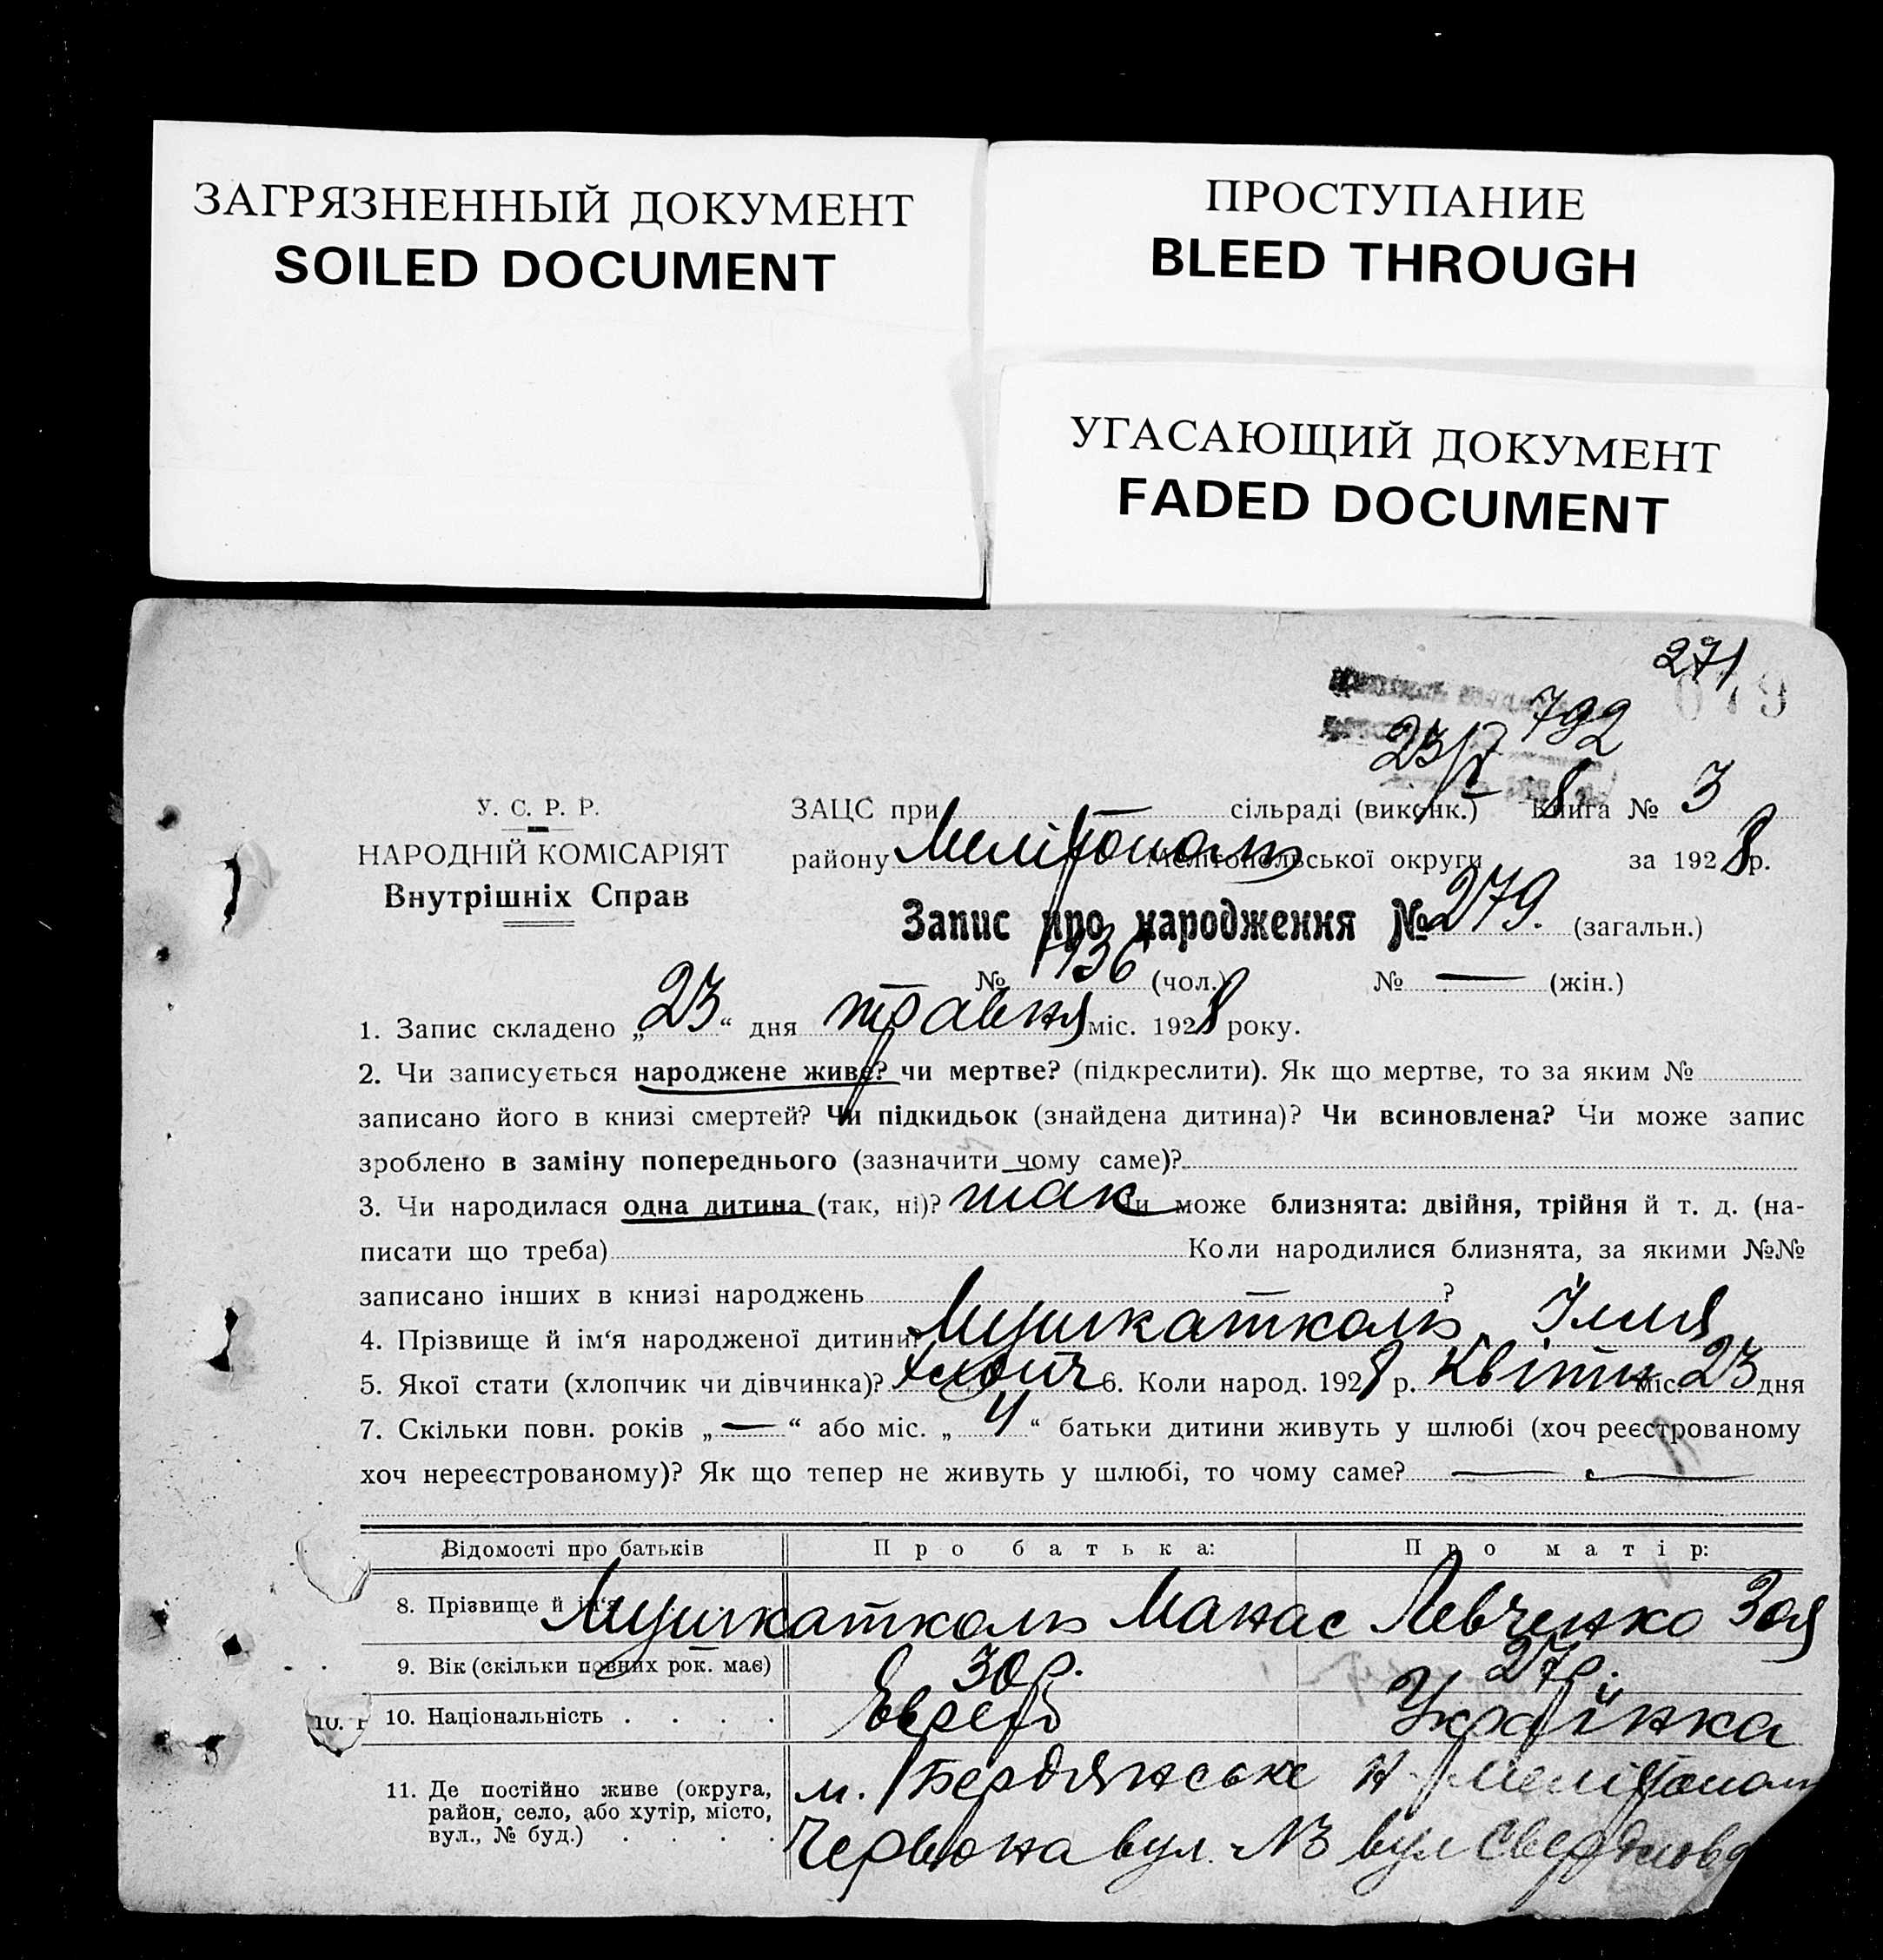 ЗАГРЯЗНЕННЫЙ ДОКУМЕНТ
SOILED DOCUMENT
ПРОСТУПАНИЕ
BLEED THROUGH
УГАСАЮЩИЙ ДОКУМЕНТ
FADED DOCUMENT
271
079
792
23/V 8
У. С. Р. Р.
НАРОДНІЙ КОМІСАРІЯТ
Внутрішніх Справ
ЗАЦС при сільраді (виконк.) Книга № 3
району Мелітополь Мелітопольської округи за 1928 р.
Запис про народження № 279. (загальн.)
№ 136 (чол.) № — (жін.)
1. Запис складено „23“ дня травня міс. 1928 року.
2. Чи записується народжене живе? чи мертве? (підкреслити). Як що мертве, то за яким №
записано його в книзі смертей? Чи підкидьок (знайдена дитина)? Чи всиновлена? Чи може запис
зроблено в заміну попереднього (зазначити чому саме)?
3. Чи народилася одна дитина (так, ні)? так Чи може близнята: двійня, трійня й т. д. (на-
писати що треба) Коли народилися близнята, за якими №№
записано інших в книзі народжень ?
4. Прізвище й ім‘я народженої дитини: Мушкатколь Ілля
5. Якої стати (хлопчик чи дівчинка)? хлопч 6. Коли народ. 1928 р. Квітн міс. 23 дня
7. Скільки повн. років „—“ або міс. „4“ батьки дитини живуть у шлюбі (хоч реєстрованому
хоч нереєстрованому)? Як що тепер не живуть у шлюбі, то чому саме? — —
Відомості про батьків Про батька: Про матір:
8. Прізвище й ім‘я Мушкатколь Манас Левченко Зоя
9. Вік (скільки повних рок. має) 30 р. 27 р.
10. Національність . . . . Еврей Українка
11. Де постійно живе (округа,
район, село, або хутір, місто,
вул., № буд.) . . . .
м. Бердянське м. Мелітополь
Червона вул. №3 вул Свердлова